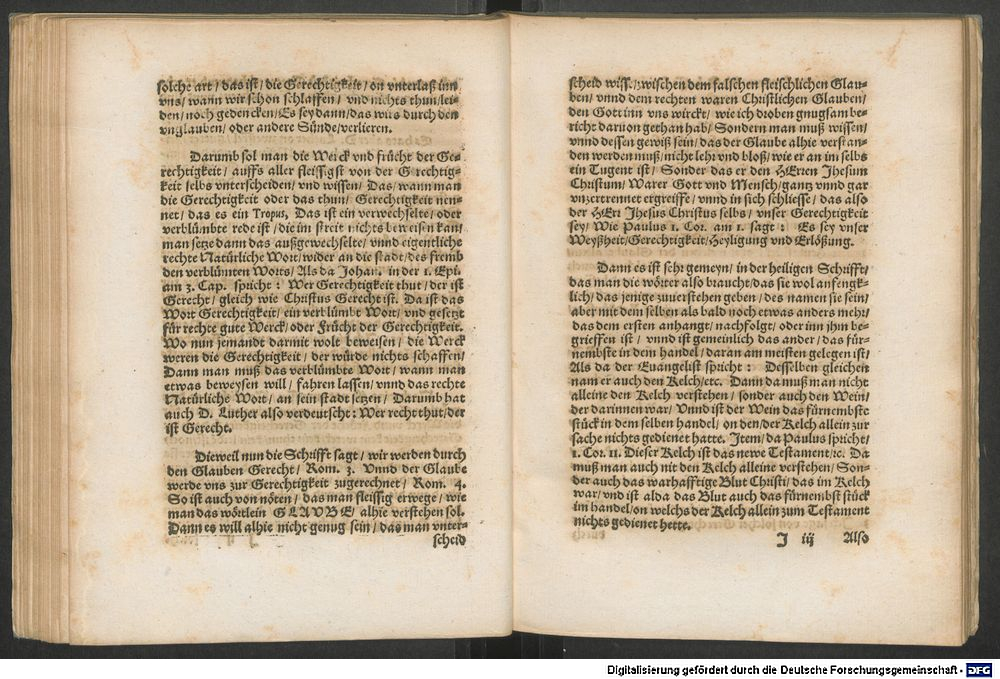 solche art / das ist / die Gerechtigkeit / on vnterlaß inn
vns / wann wir schon schlaffen / vnd nichts thun / lei-
den / noch gedencken / Es sey dann / das wirs durch den
vnglauben / oder andere Sünde / verlieren.
Darumb sol man die Werck vnd frücht der Ge-
rechtigkeit / auffs aller fleissigst von der Gerechtig-
keit selbs vnterscheiden / vnd wissen / Das / wann man
die Gerechtigkeit oder das thun / Gerechtigkeit nen-
net / das es ein Tropus, Das ist ein verwechselte / oder
verblümbte rede ist / die im streit nichts beweisen kan /
man setze dann das außgewechselte / vnnd eigentliche
rechte Natürliche Wort / wider an die stadt / des fremb
den verblümten Worts / Als da Johan. in der 1. Epi.
am 3. Cap. spricht : Wer Gerechtigkeit thut / der ist
Gerecht / gleich wie Christus Gerecht ist. Da ist das
Wort Gerechtigkeit / ein verblümbt Wort / vnd gesetzt
für rechte gute Werck / oder Frücht der Gerechtigkeit.
Wo nun jemandt darmit wolt beweisen / die Werck
weren die Gerechtigkeit / der würde nichts schaffen /
Dann man muß das verblümbte Wort / wann man
etwas beweysen will / fahren lassen / vnnd das rechte
Natürliche Wort / an sein stadt setzen / Darumb hat
auch D. Luther also verdeutscht : Wer recht thut / der
ist Gerecht.
Dieweil nun die Schrifft sagt / wir werden durch
den Glauben Gerecht / Rom. 3. Vnnd der Glaube
werde vns zur Gerechtigkeit zugerechnet / Rom. 4.
So ist auch von nöten / das man fleissig erwege / wie
man das wörtlein GLAVBE / alhie verstehen sol.
Dann es will alhie nicht genug sein / das man vnter-
scheid
scheid wisse zwischen dem falschen fleischlichen Glau-
ben / vnnd dem rechten waren Christlichen Glauben /
den Gott inn vns wirckt / wie ich droben gnugsam be-
richt daruon gethan hab / Sondern man muß wissen /
vnnd dessen gewiß sein / das der Glaube alhie verstan-
den werden muß / nicht lehr vnd bloß / wie er an im selbs
ein Tugent ist / Sonder das er den HErren Jhesum
Christum / Warer Gott vnd Mensch / gantz vnnd gar
vnzertrennet ergreiffe / vnnd in sich schliesse / das also
der HErr Jhesus Christus selbs / vnser Gerechtigkeit
sey / Wie Paulus 1. Cor. am 1. sagt : Es sey vnser
Weyßheit / Gerechtigkeit / Heyligung vnd Erlößung.
Dann es ist sehr gemeyn / in der heiligen Schrifft /
das man die wörter also braucht / das sie wol anfengk-
lich / das jenige zuuerstehen geben / des namen sie sein /
aber mit dem selben als bald noch etwas anders mehr /
das dem ersten anhangt / nachfolgt / oder inn jhm be-
grieffen ist / vnnd ist gemeinlich das ander / das für-
nembste in dem handel / daran am meisten gelegen ist /
Als da der Euangelist spricht : Desselben gleichen
nam er auch den Kelch / etc. Dann da muß man nicht
alleine den Kelch verstehen / sonder auch den Wein /
der darinnen war / Vnnd ist der Wein das fürnembste
stück in dem selben handel / on den / der Kelch allein zur
sache nichts gedienet hatte. Item / da Paulus spricht /
1. Cor. 11. Dieser Kelch ist das newe Testament / ꝛc. Da
muß man auch nit den Kelch alleine verstehen / Son-
der auch das warhafftige Blut Christi / das im Kelch
war / vnd ist alda das Blut auch das fürnembst stück
im handel / on welchs der Kelch allein zum Testament
nichts gedienet hette.
J iij Also
Digitalisierung gefördert durch die Deutsche Forschungsgemeinschaft - DFG